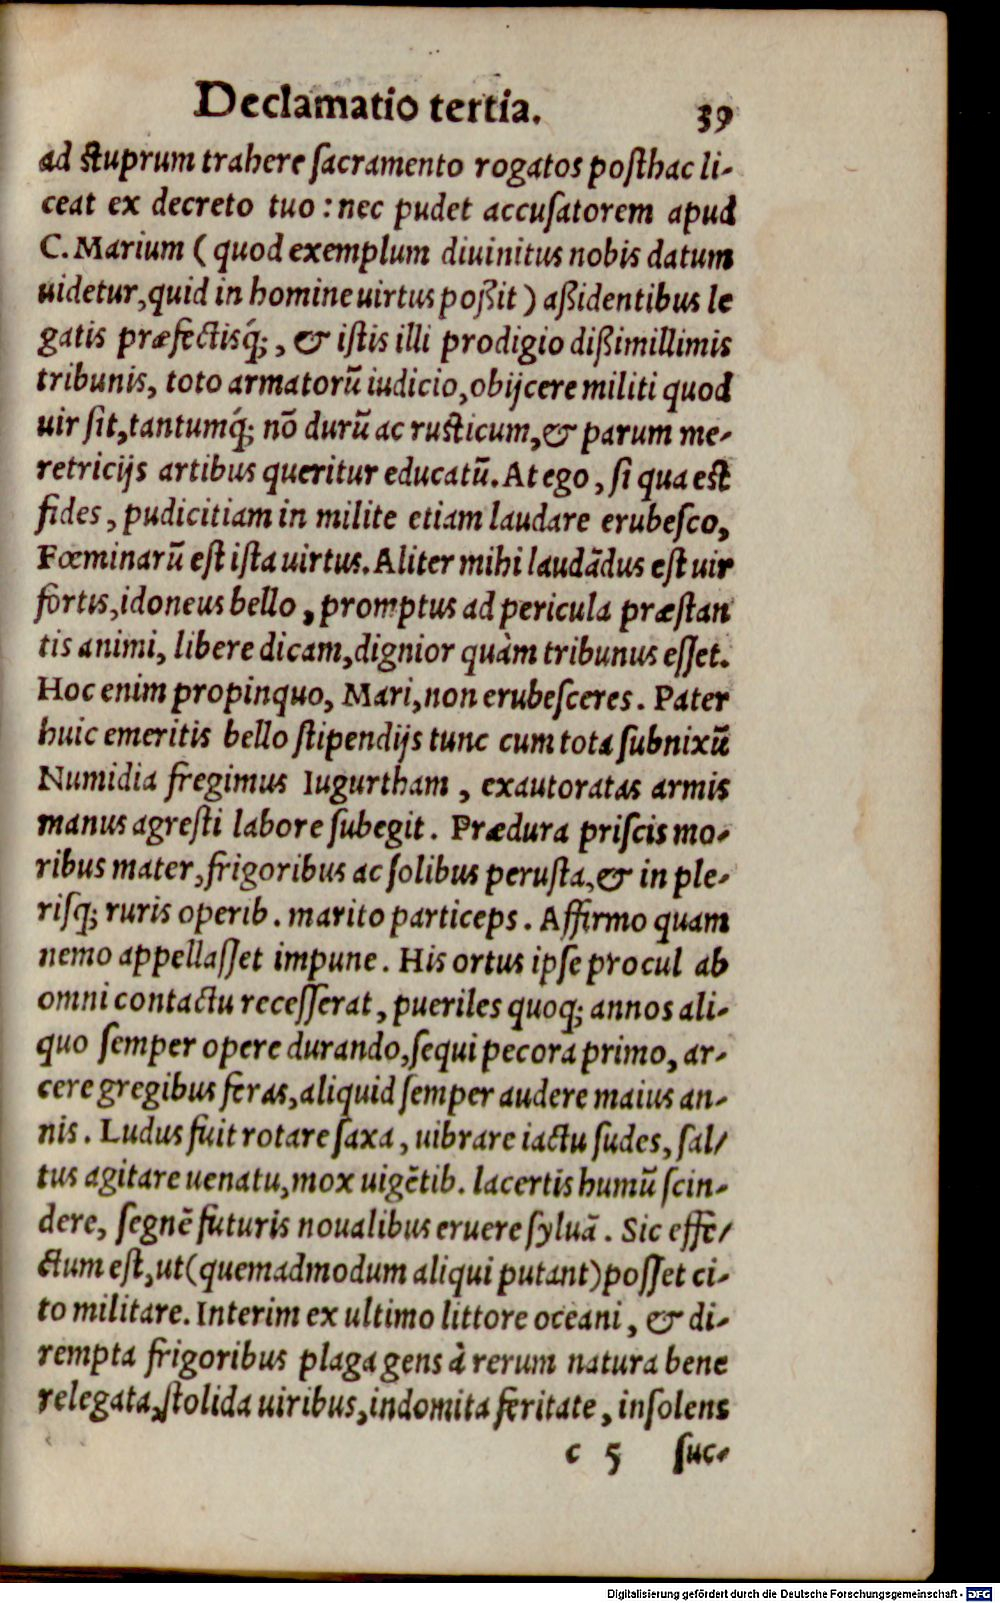 Declamatio tertia. 39
ad stuprum trahere ſacramento rogatos poſthac li-
ceat ex decreto tuo: nec pudet accuſatorem apud
C. Marium (quod exemplum diuinitus nobis datum
uidetur, quid in homine uirtus poßit) aßidentibus le
gatis præfectisq́;, & iſtis illi prodigio dißimillimis
tribunis, toto armatorũ iudicio, obijcere militi quod
uir ſit, tantumq́; nõ durũ ac rusticum, & parum me-
retricijs artibus queritur educatũ. At ego, ſi qua est
fides, pudicitiam in milite etiam laudare erubeſco,
Fœminarũ eſt iſta uirtus. Aliter mihi laudãdus eſt uir
fortis, idoneus bello, promptus ad pericula præſtan
tis animi, libere dicam, dignior quàm tribunus eſſet.
Hoc enim propinquo, Mari, non erubeſceres. Pater
huic emeritis bello ſtipendijs tunc cum tota ſubnixũ
Numidia fregimus Iugurtham, exautoratas armis
manus agreſti labore ſubegit. Prædura priſcis mo-
ribus mater, frigoribus ac ſolibus peruſta, & in ple-
riſq; ruris operib. marito particeps. Affirmo quam
nemo appellaſſet impune. His ortus ipſe procul ab
omni contactu receſſerat, pueriles quoq; annos ali-
quo ſemper opere durando, ſequi pecora primo, ar-
cere gregibus feras, aliquid ſemper audere maius an-
nis. Ludus fuit rotare ſaxa, uibrare iactu ſudes, ſal-
tus agitare uenatu, mox uigẽtib. lacertis humũ ſcin-
dere, ſegnẽ futuris noualibus eruere ſyluã. Sic effe-
ctum eſt, ut (quemadmodum aliqui putant) poſſet ci-
to militare. Interim ex ultimo littore oceani, & di-
rempta frigoribus plaga gens à rerum natura bene
relegata, ſtolida uiribus, indomita feritate, inſolens
c 5 ſuc-
Digitalisierung gefördert durch die Deutsche Forschungsgemeinschaft - DFG